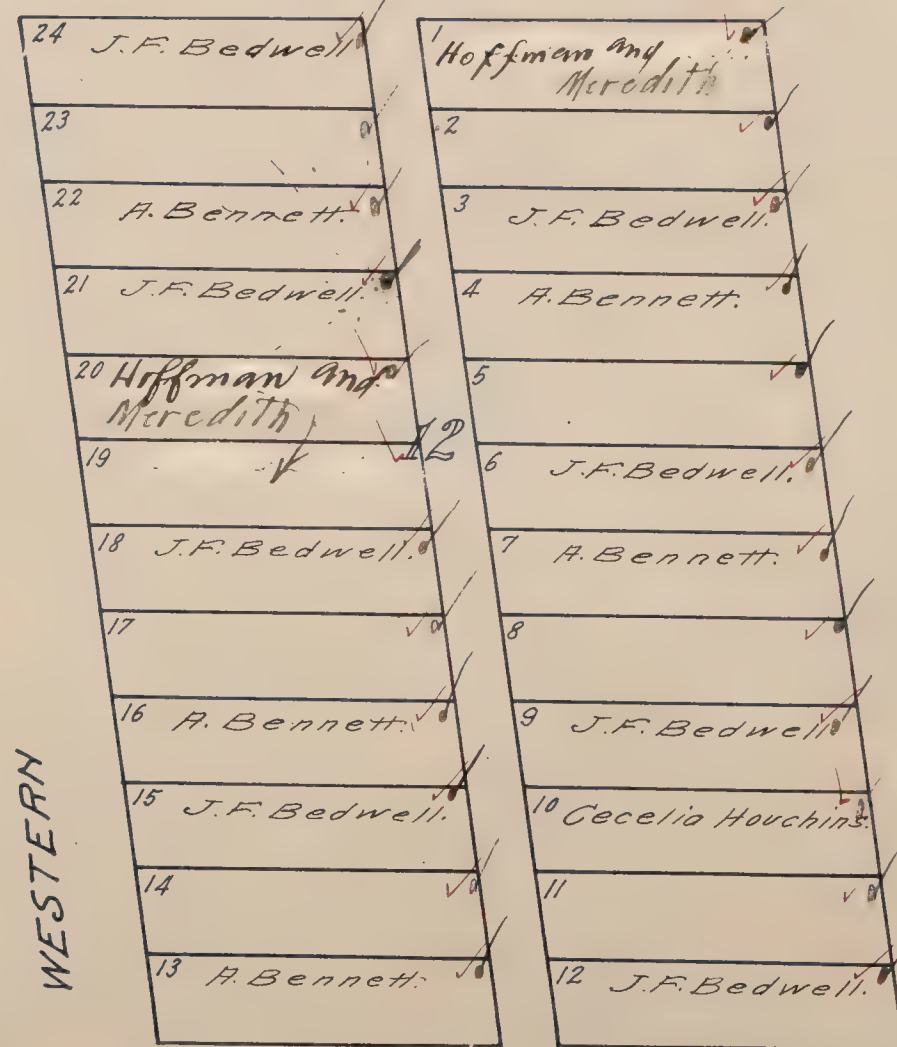 24 J.F. Bedwell
23
22 A. Bennett.
21 J.F. Bedwell.
20 Hoffman and
Meredith
19
18 J.F. Bedwell.
17
16 A. Bennett.
15 J.F. Bedwell.
14
13 A. Bennett.
12
1 Hoffman and
Meredith
2
3 J.F. Bedwell.
4 A. Bennett.
5
6 J.F. Bedwell.
7 A. Bennett.
8
9 J.F. Bedwell
10 Cecelia Houchins.
11
12 J.F. Bedwell.
WESTERN